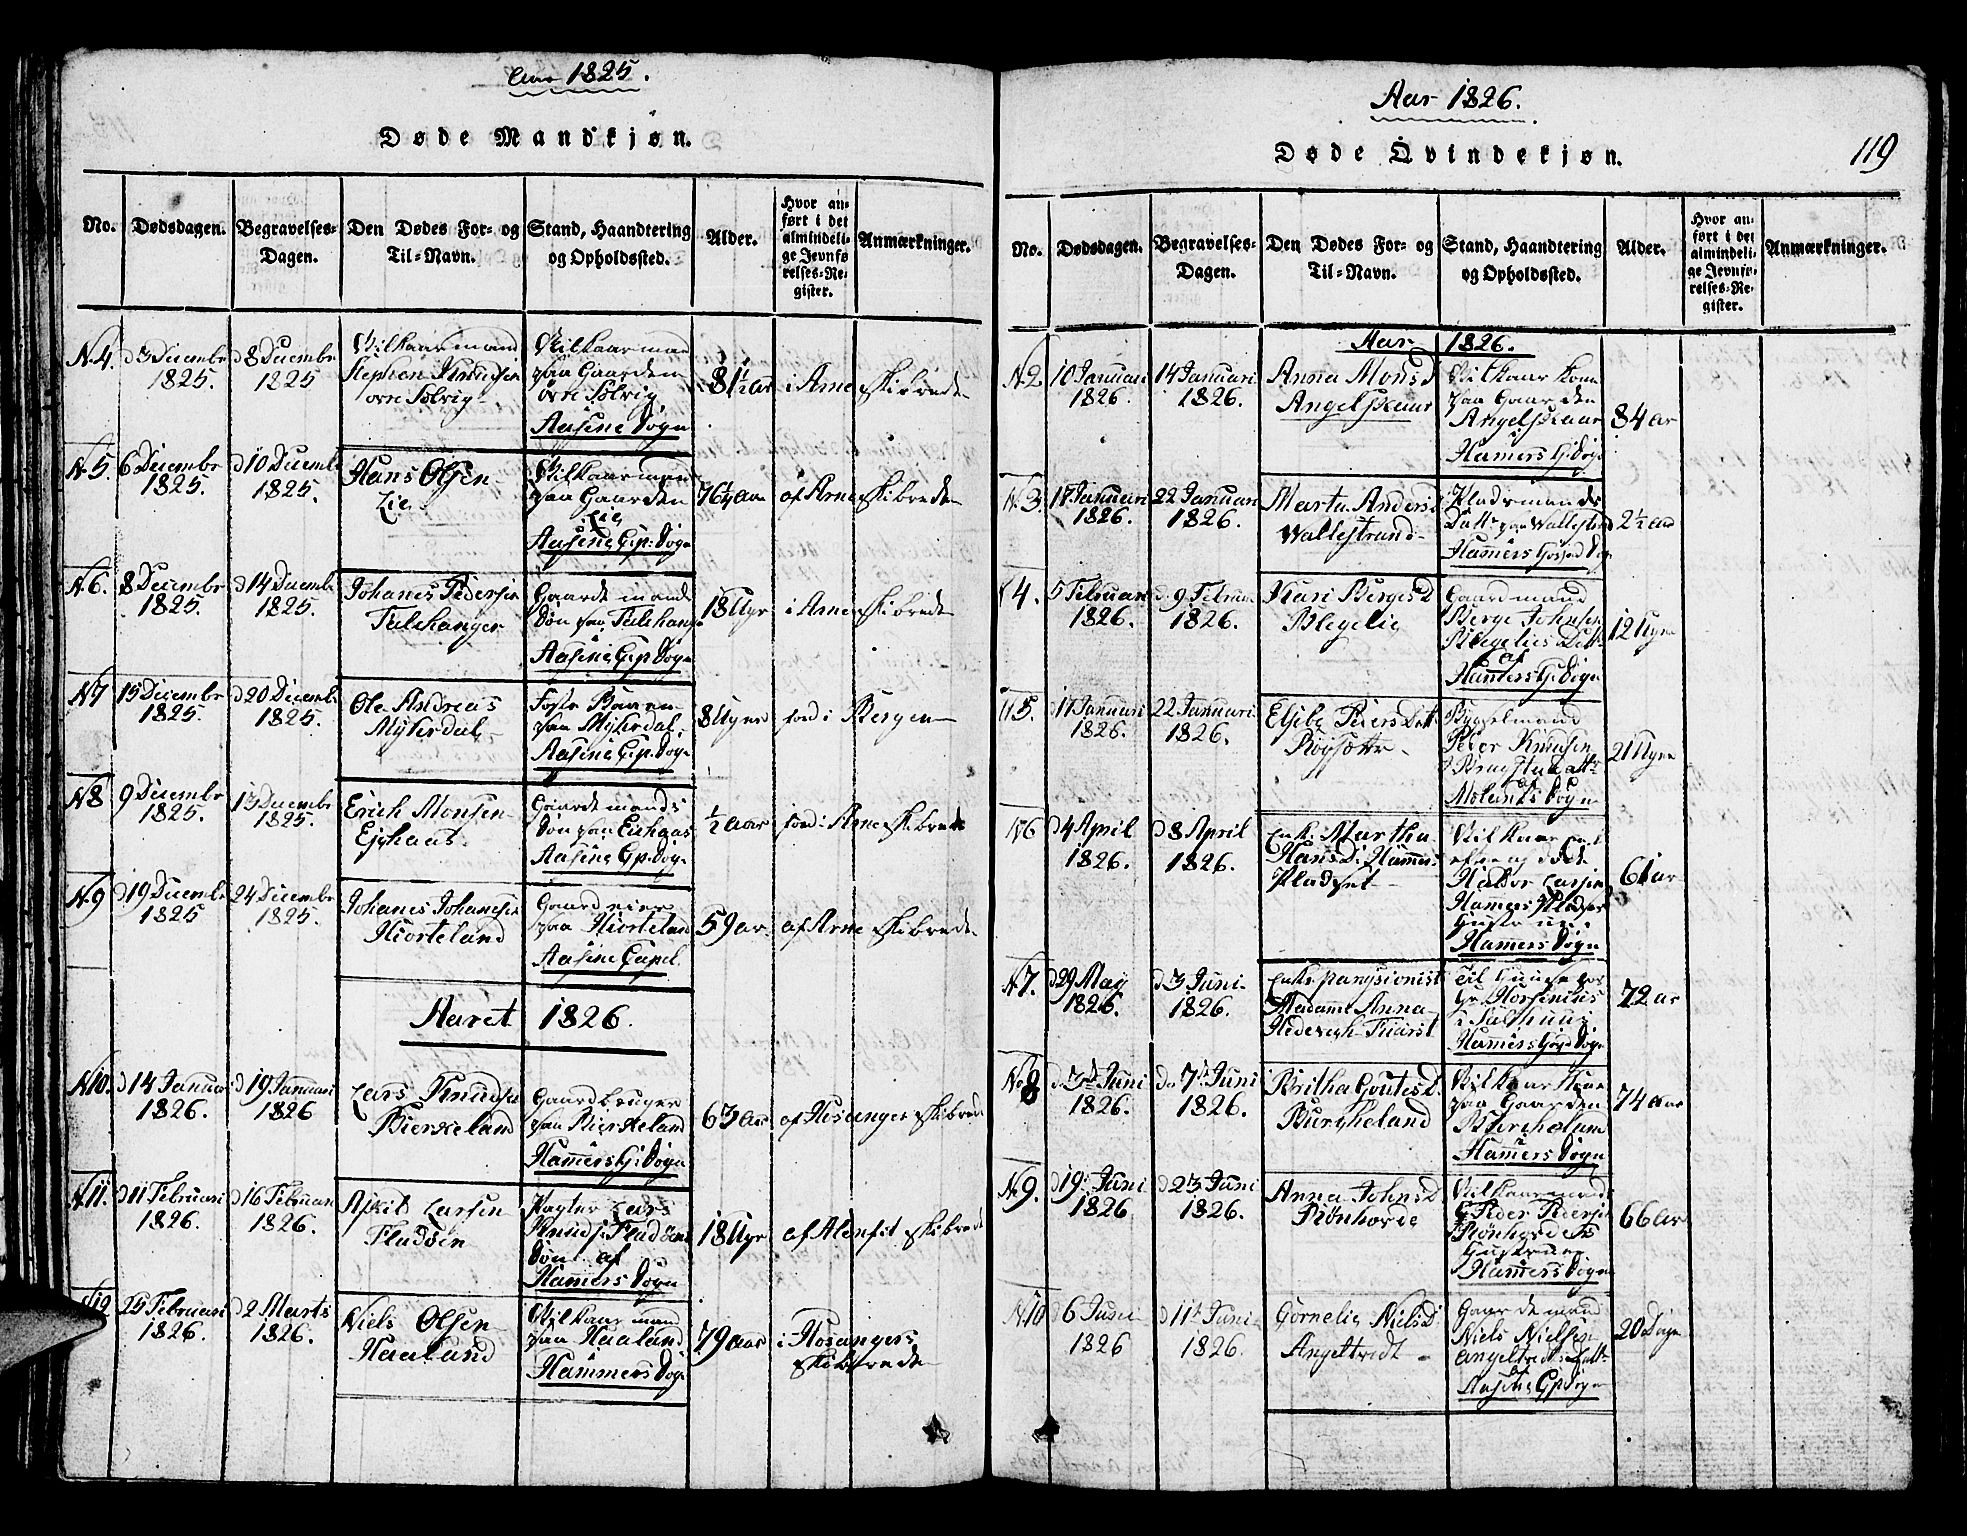 Aar 1825.
Døde Mandkjøn.
No.
Dødsdagen.
Begravelses-
Dagen.
Den Dødes For- og
Til-Navn.
Stand, Haandtering
og Opholdssted.
Alder.
Hvor an-
ført i det
almindeli-
ge Jevnfø-
relses-Re-
gister.
Anmærkninger.
N.4.
d 3 Decembr
1825.
d 8 Decembr
1825
Vilkaarmand
Stephen Knudsen
øvre Solvig
Vilkaarmand
paa Gaarden
øvre Solvig
Aasene Sogn
81½ aar
i Arne Skibrede
N.5
6 Decembr
1825.
d 10 Decemb
1825.
Hans Olsen
Lie
Vilkaarmand
paa Gaarden
Lie
Aasene Cap. Sogn
76½ aar
af Arne Skibrede
N.6.
8 Decembr
1825.
d 14 Decembr
1825.
Johanes Pedersen
Gaardmands
Søn paa
Aasene Cap. Sogn
18 Uger
i Arne Skibrede
N7
15 Decembr
1825.
d 20 Decemb
1825.
Ole Andreas
Myherdal
Foster Barn
paa Myherdal.
Aasene Cap. Sogn
8 Uger
født i Bergen
N8
9 Decembr
1825.
13 Decembr
1825.
Erich Monsen
Gaardmands
Søn paa
Aasene Cp. Sogn
½ aar
født i Arne Skibrede
N.9
d 19 Decembr
1825
24 Decembr
1825.
Johanes Johansen
Hiorteland
Gaard
paa Hiorteland
Aasene Capel.
59 ar.
af Arne Skibrede
Aaret 1826.
N10.
d 14 Januar
1826.
d 19 Januari
1826
Lars Knudsen
Bierkeland
Gaardbruger
paa Bierkeland
Hamers G. Sogn
63 aar
af Hosanger Skibrede
N.11.
d 11 Februari
1826.
d 16 Februar
1826.
Axel Larsen
Fladøen
Lars
Knuds. Fladøens
Søn af
Hamers Sogn
18 Uger
af Alenfit Skibrede
N12
25 Februari
1826.
d 2 Marts
1826.
Niels Olsen
Haaland
Vilkaarmand
paa Haaland
Hammers Sogn
79 aar
i Hosangers
Skibrede
Aar 1826.
119
Døde Qvindekjøn.
No.
Dødsdagen.
Begravelses-
Dagen.
Den Dødes For- og
Til-Navn.
Stand, Haandtering
og Opholdssted.
Alder.
Hvor an-
ført i det
almindeli-
ge Jevnfø-
relses-Re-
gister.
Anmærkninger.
Aar 1826.
N.2
10 Januari
1826.
14 Januari
1826.
Anna Monsd
Angelskaar
Vilkaar Kone
paa Gaarden
Angelskaar
Hamers G. Sogn
84 ar
N.3
17 Januari
1826.
22 Januari
1826.
Marta Andersd
Wallestrand
Pladsmands
Datt. paa Wallestrand
Hamers Sogn
2½ aar
N4.
5 Februari
1826.
d. 9 Februar
1826.
Kari Bergesd
Blegelie
Gaardmand
Berge Johnsen
Blegelies Datt.
af
Hamers G. Sogn
12 Uger
N5.
d 17 Januari
1826.
22 Januari
1826.
Elsebe Peiersdatt
Bygselmand
Peder Knudsen
21 Uger
N6
d 4 April
1826.
d 8 April
1826.
Enke Martha
Hansd. Hammers
Pladset
Vilkaar
Haldor Larsen
Hamers Pladser
Hamers Sogn
61 ar
N.7.
d 29 May
1826.
d 3 Juni
1826.
Enke pansionist
Madamme Anna
til huuse hos
Hr
Hamers Sogn
72 ar
No8
d. 3d Juni
1826.
d. 7d Juni
1826.
Britha Goutesd.
Burkheland
Vilkaar Kone
paa Gaarden
Hamers Sogn
74 aar
N.9.
d 19. Juni
1826
d 23 Juni
1826.
Anna Johnsd
Rønhovde
Vilkaarmand
Peder Pedersen
Rønhovdes
Hustrue
Hamers Sogn
66 ar
N10
d 6 Juni
1826
d 11t Juni
1826.
Cornelia Nielsd
Angeltvedt
Gaardmand
Niels Nielsen
Angeltvedts Datt.
Aasene Cp Sogn
20 Dage